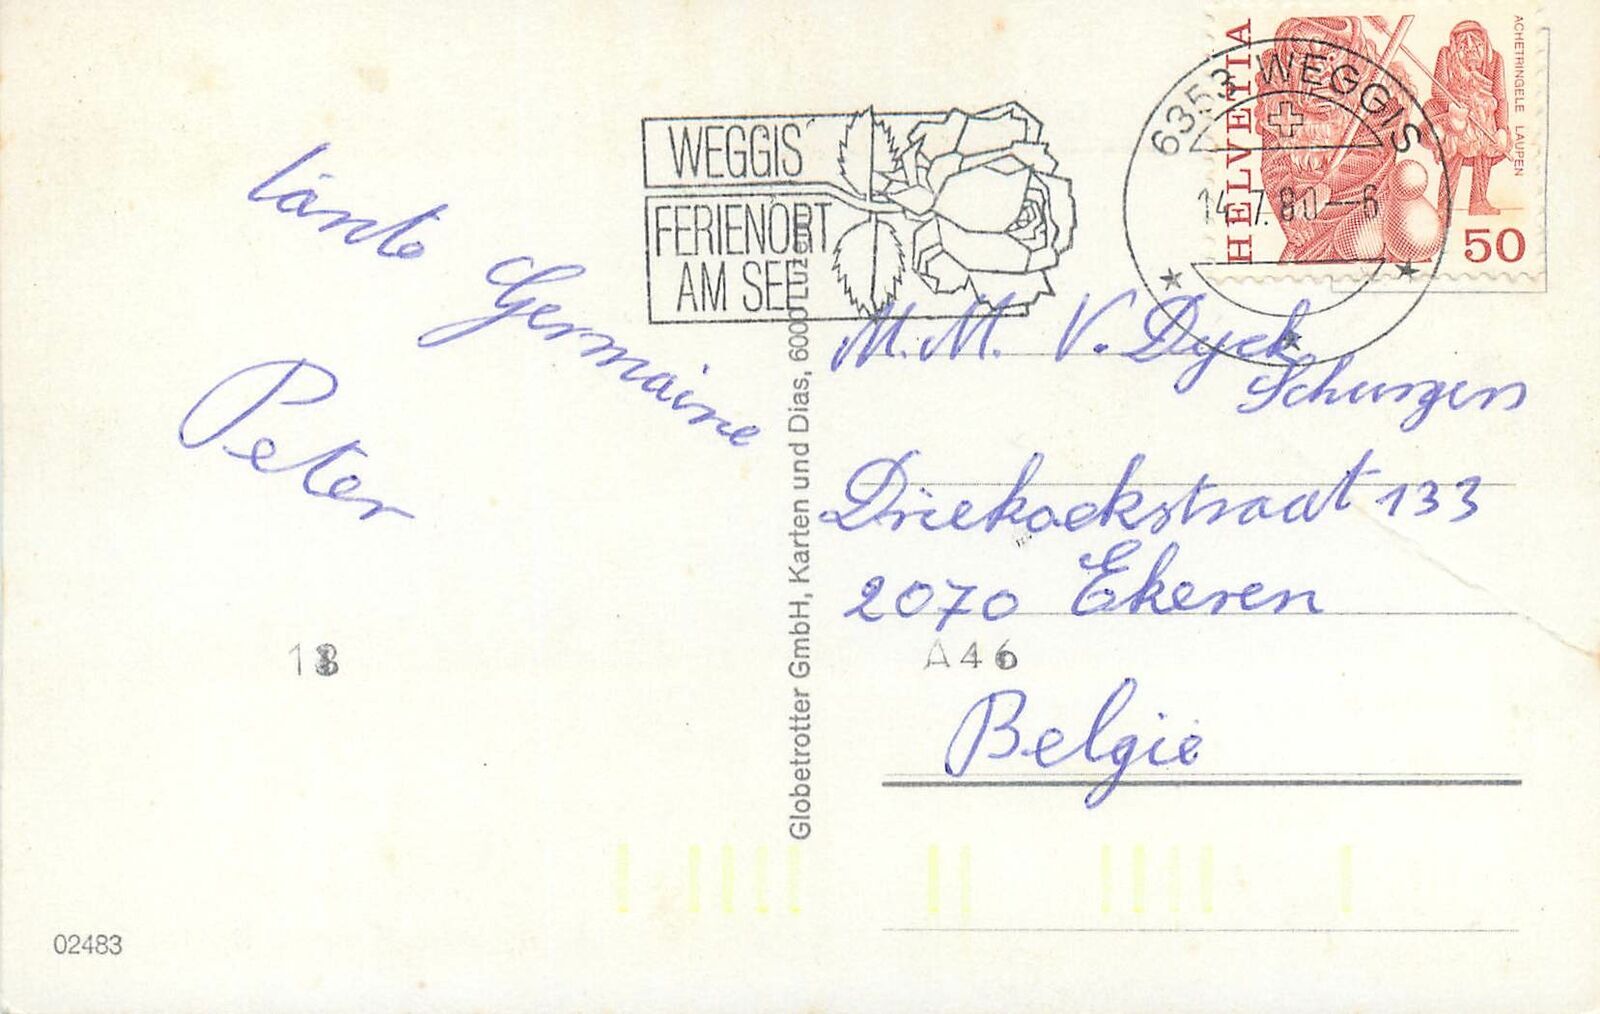 tante Germaine
Peter
18
02483
Globetrotter GmbH, Karten und Dias, 6000 Luzern
WEGGIS
FERIENORT
AM SEE
6353 WEGGIS
14.7.80–6
HELVETIA
ACHETRINGELE LAUPEN
50
M. M. V. Dyck
Schurgers
Driehoekstraat 133
2070 Ekeren
A46
België